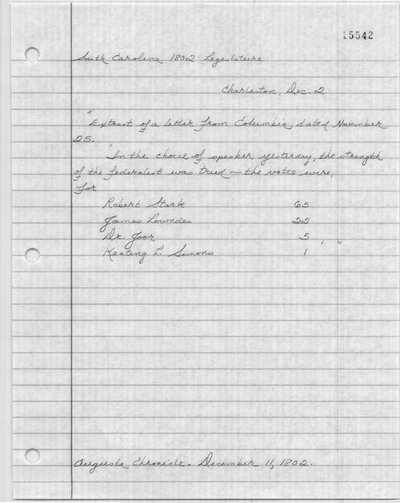 15542
South Carolina 1802 Legislature
Charleston, Dec. 2
"Extract of a letter from Columbia dated November
25.
'In the choice of speaker yesterday, the strength
of the federalist was tried — the votes were,
for
Robert Stark 65
James Lowndes 22
Dr. Joor 5
Keating L. Simons 1 ' "
Augusta Chronicle. December 11, 1802.